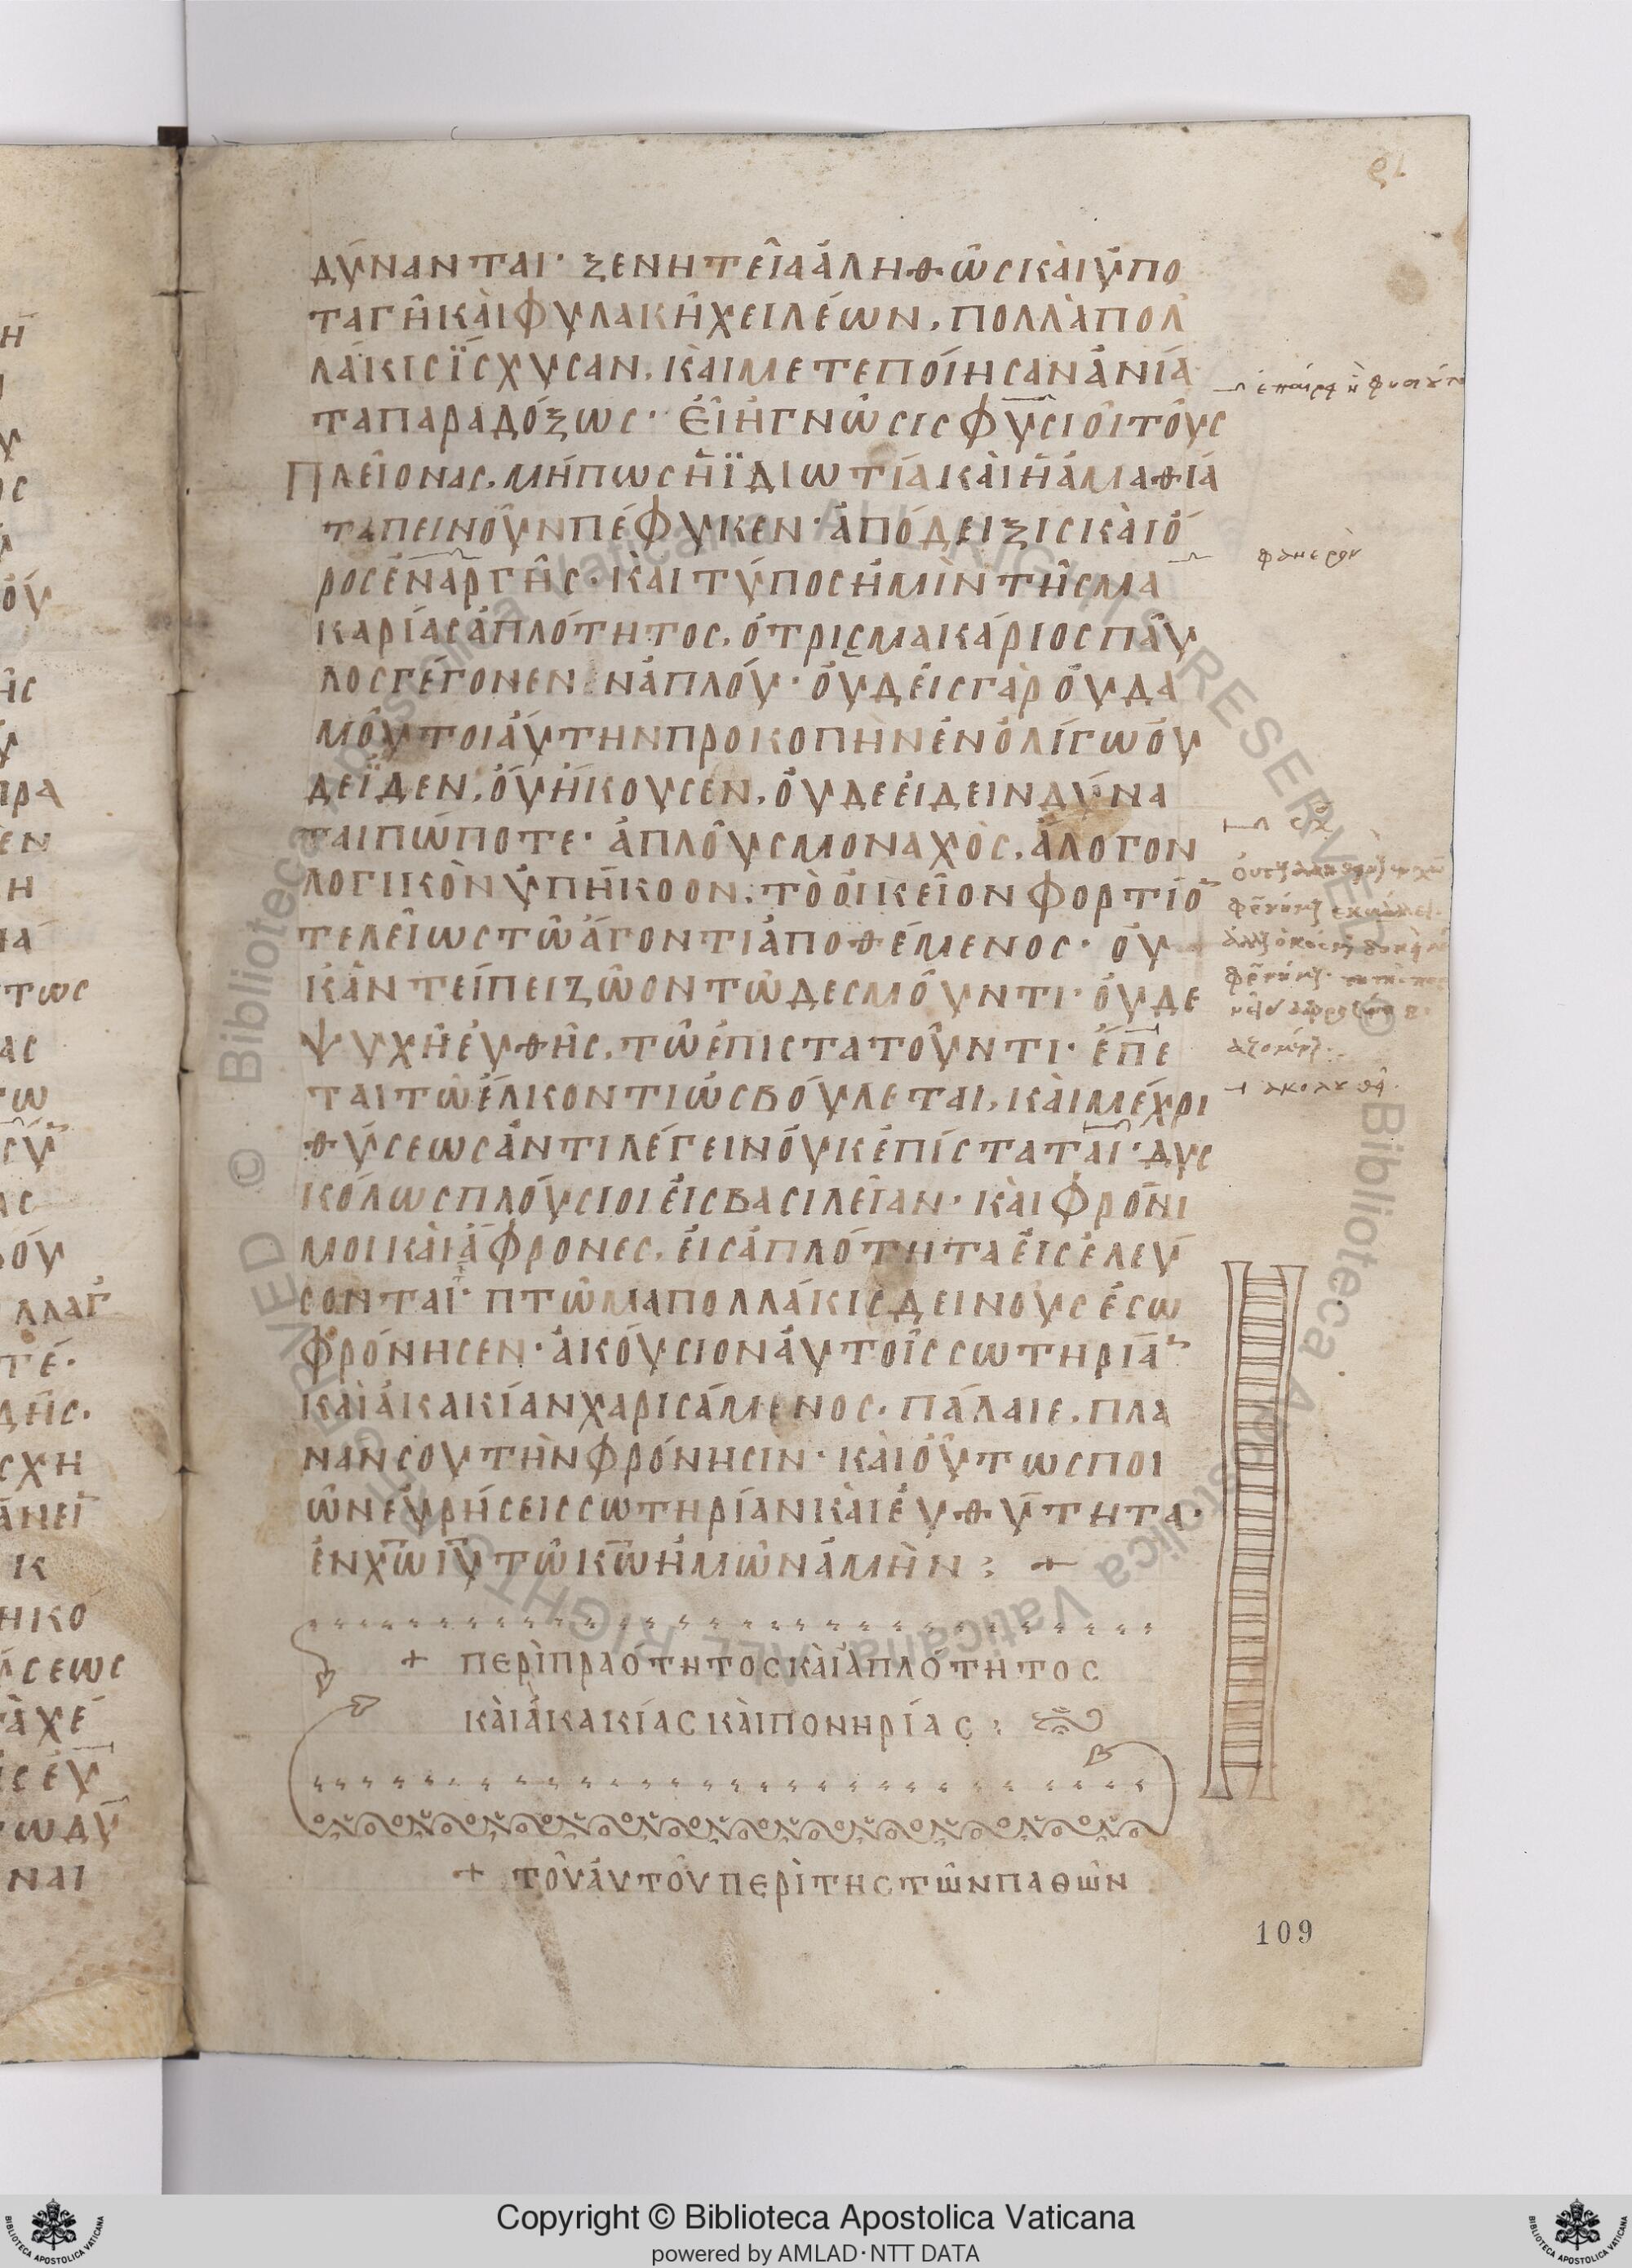 δύνανται· ξενητεῖα ἀληθῶς καὶ ὑπο
ταγὴ καὶ φυλακὴ χειλέων, πολλὰ πολ
λάκις ἴσχυσαν, καὶ μετεποίησαν ἀνία
τα παραδόξως· εἰ ἡ γνῶσις φυσιοῖ τοὺς
πλείονας, μήπως ἡ ἰδιωτία καὶ ἡ ἀμαθία
ταπεινοῦν πέφυκεν· ἀπόδειξις καὶ ὅ
ρος ἐναργὴς· καὶ τύπος ἡμῖν τῆς μα
καρίας ἁπλότητος, ὁ τρισμακάριος παῦ
λος γέγονεν ὁ ἁπλοῦ· οὐδεὶς γὰρ οὐδα
μοῦ τοιαύτην προκοπὴν ἐν ὀλίγω οὐ
δ εἶδεν, οὐ ἤκουσεν, οὐδε εἰδειν δύνα
ται πώποτε· ἁπλοῦς μοναχὸς, ἄλογον
λογικὸν ὑπήκοον, τὸ οἰκεῖον φορτίο
τελείως τῶ ἄγοντι ἀποθέμενος· οὐ
κ ἀντείπει ζῶον τῶ δεσμοῦντι· οὐδε
ψυχὴ εὐθὴς, τῶ ἐπιστατοῦντι· ἕπε
ται τῶ ἕλκοντι ὡς βούλεται, καὶ μέχρι
θύσεως ἀντιλέγειν οὐκ ἐπίσταται· δυς
κόλως πλούσιοι εἰς βασιλείαν· καὶ φρόνι
μοι καὶ ἄφρονες, εἰς ἁπλότητα εἰσελεύ
σονται· πτῶμα πολλάκις δεινοὺς ἐσω
φρόνησεν· ἀκούσιον αὐτοῖς σωτηρία
καὶ ἀκακίαν χαρισάμενος· πάλαιε, πλα
νᾶν σου τὴν φρόνησιν· καὶ οὕτως ποι
ῶν εὑρήσεις σωτηρίαν καὶ εὐθύτητα·
ἐν χω ιυ τῶ κω ἡμῶν ἀμὴν : +
+ περὶ πραότητος καὶ ἁπλότητος
καὶ ἀκακίας καὶ πονηρίας :
+ τοῦ αὐτοῦ περὶ τῆς τῶν παθῶν
φανερὸν
ἀκολουθεῖ
109
Copyright © Biblioteca Apostolica Vaticana
powered by AMLAD·NTT DATA